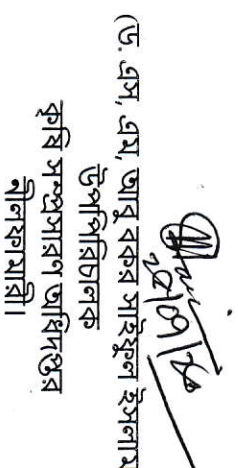 (ড. এস, এম, আবু বকর সাইফুল ইসলাম
উপপরিচালক
কৃষি সম্প্রসারণ অধিদপ্তর
নীলফামারী।